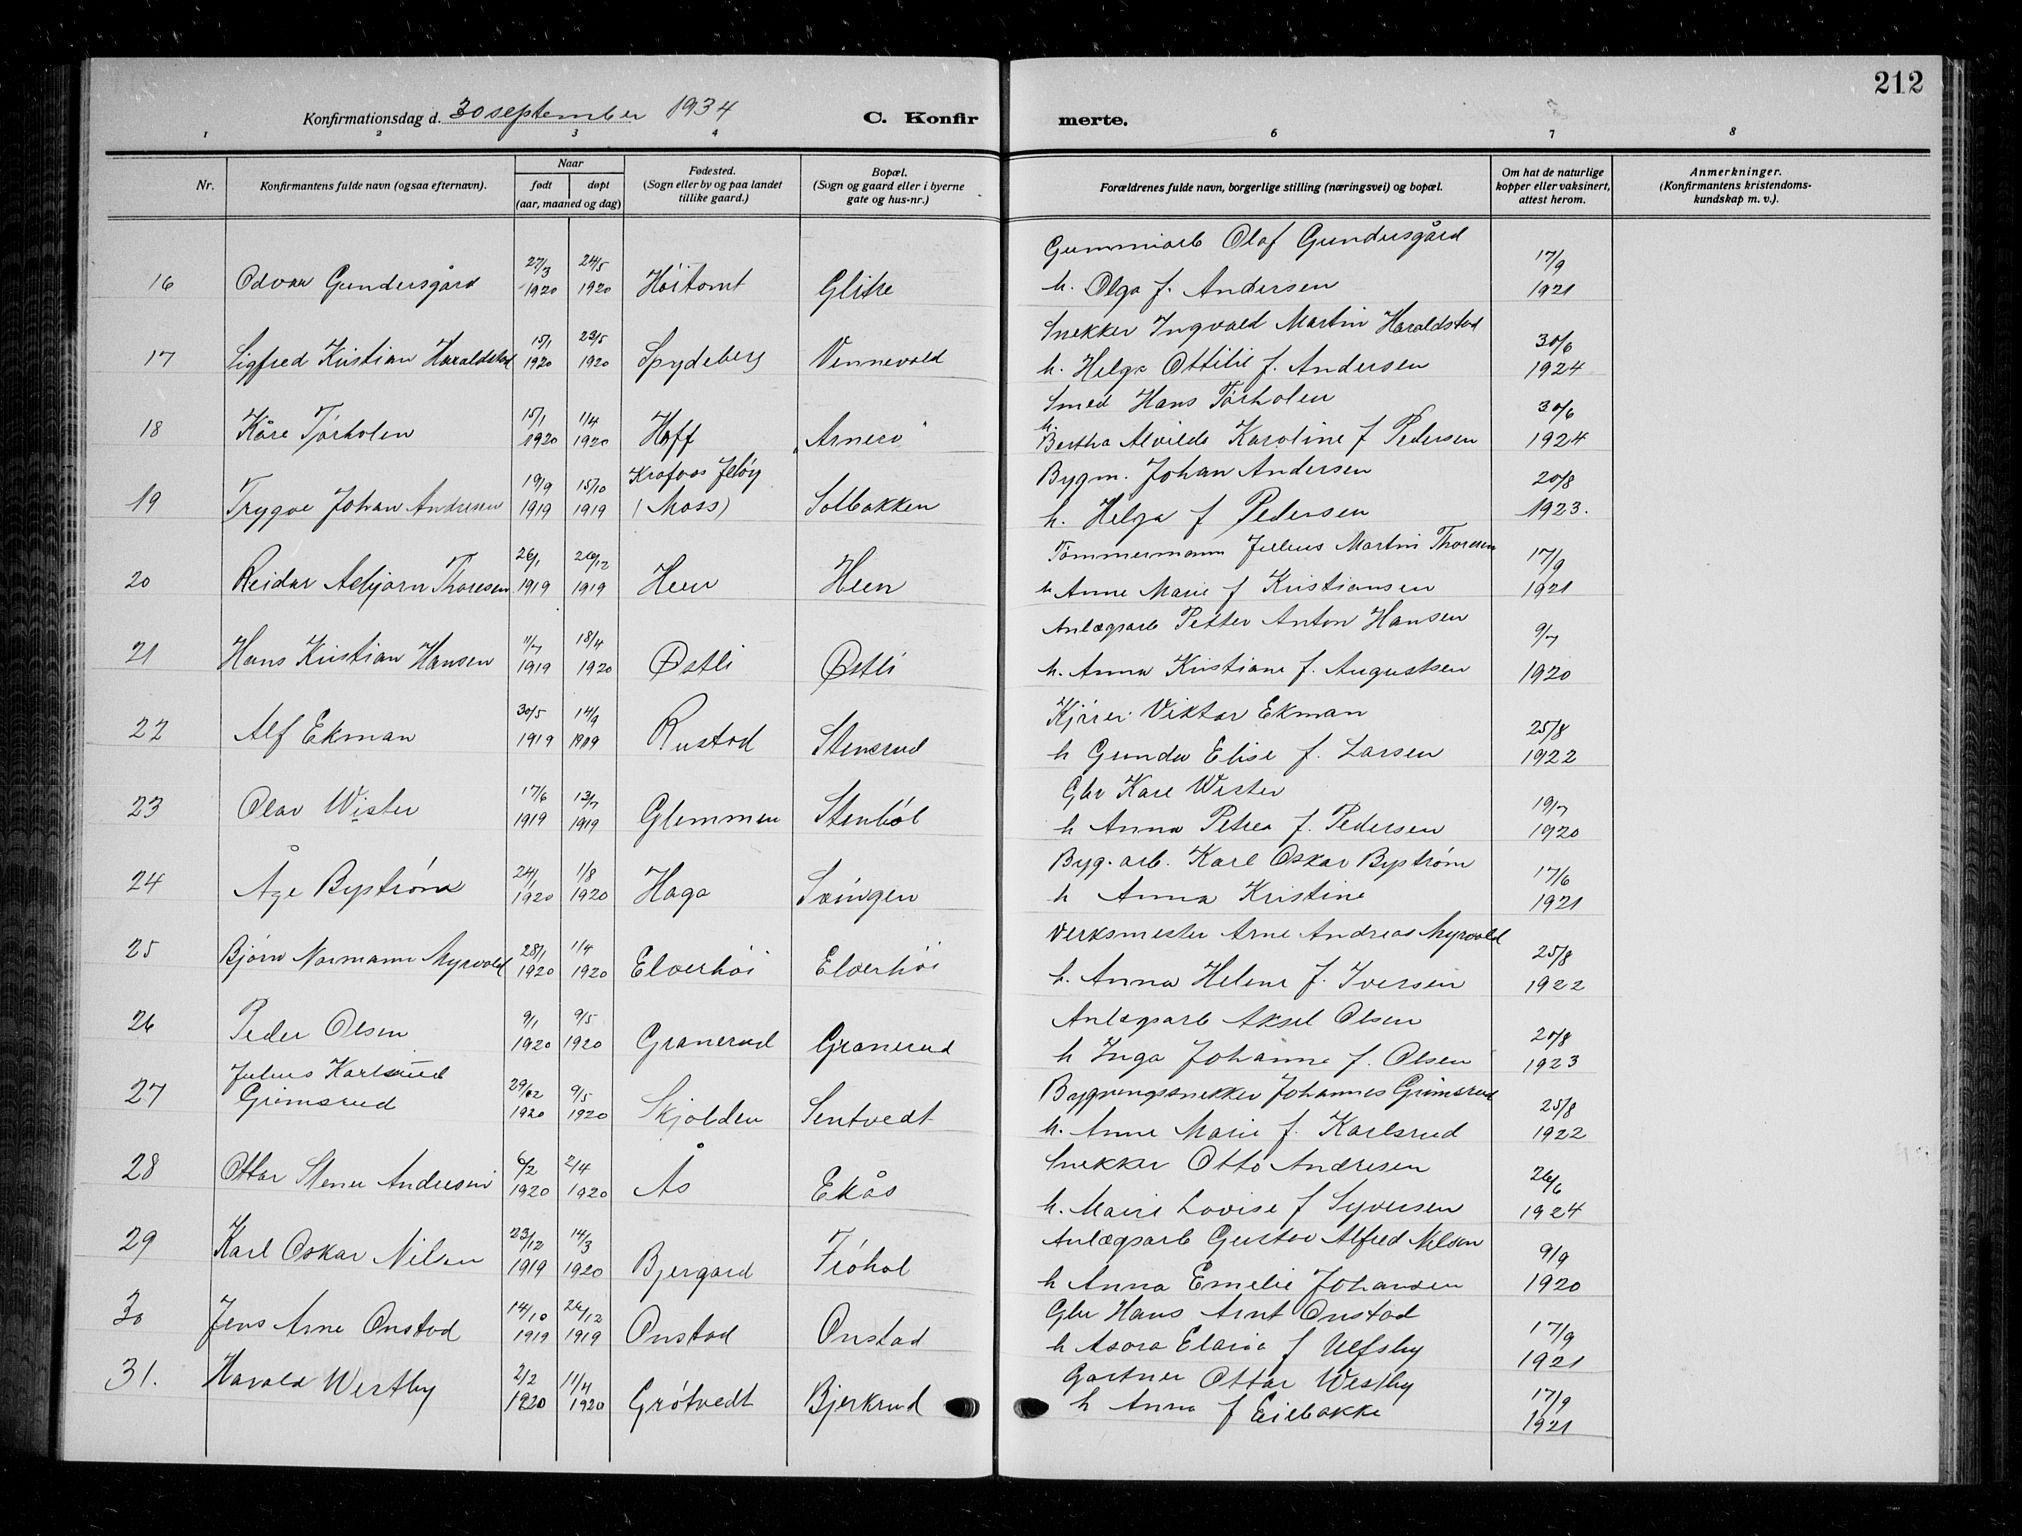 212
Konfirmationsdag d. 30 september 1934
C. Konfirmerte.
1 2 3 4 6 7 8
Nr.
Konfirmantens fulde navn (ogsaa efternavn).
Naar
født døpt
(aar, maaned og dag)
Fødested.
(Sogn eller by og paa landet
tillike gaard.)
Bopæl.
(Sogn og gaard eller i byerne
gate og hus-nr.)
Forældrenes fulde navn, borgerlige stilling (næringsvei) og bopæl.
Om hat de naturlige
kopper eller vaksinert,
attest herom.
Anmerkninger.
(Konfirmantens kristendoms-
kundskap m. v.).
27/3 24/5 Gummiarb Olaf Gundersgård 17/9
16 Odvar Gundersgård 1920 1920 Høitomt Glitre h. Olga f. Andersen 1921
15/1 23/5 Snekker Ingvald Martin Haraldstad 30/6
17 Sigfred Kristian Haraldstad 1920 1920 Spydeberg Vennevold h. Helga Ottilie f. Andersen 1924
15/1 1/4 Smed Hans Tørholen 30/6
18 Kåre Tjørholen 1920 1920 Haff Arnero h. Bertha Alvilde Karoline f Pedersen 1924
19/9 15/10 Krafoss Jeløy Bygm. Johan Andersen 20/8
19 Trygve Johan Andresen 1919 1919 (Moss) Solbakken h. Helga f Pedersen 1923.
26/1 26/12 Tømmermann Julius Martin Thoresen 17/9
20 Reidar Asbjørn Thoresen 1919 1919 Heen Heen h Anne Marie f Kristiansen 1921
11/7 18/4 Anlægsarb Petter Anton Hansen 9/7
21 Hans Kristian Hansen 1919 1920 Østli Østli h. Anna Kristiane f. Augustsen 1920
30/5 14/9 Kjører Viktor Ekman 25/8
22 Alf Ekman 1919 1919 Rustad Stensrud h Gunda Elise f. Larsen 1922
17/6 13/7 Gbr Karl Wister 19/7
23 Olav Wister 1919 1919 Glemmen Stenbøl h Anna Petrea f. Pedersen 1920
24/1 1/8 Byg. arb. Karl Oskar Bystrøm 17/6
24 Åge Bystrøm 1920 1920 Haga Svingen h Anna Kristine 1921
28/1 1/4 Verksmester Arne Andreas Myrvold 25/8
25 Bjørn Normann Myrvold 1920 1920 Elverhøi Elverhøi h. Anna Helene f. Iversen 1922
9/1 9/5 Anlægsarb Aksel Olsen 20/8
26 Peder Olsen 1920 1920 Granerud Granerud h Inga Johanne f. Olsen 1923
Julius Karlsrud 29/02 9/5 Bygningssnekker Johannes Grimsrud 25/8
27 Grimsrud 1920 1920 Skjolden Sentvedt h. Anne Marie f. Karlsrud 1922
6/2 2/4 Snekker Otto Andresen 26/6
28 Ottar Stener Andersen 1920 1920 Ås Ekås h. Marie Lovise f Syversen 1924
23/12 14/3 Anlægsarb Gustav Alfred Nilsen 9/9
29 Karl Oskar Nilsen 1919 1920 Bjergard Frøhol h Anna Emelie Johansen 1920
14/10 26/12 Gbr Hans Arnt Onstad 17/9
30 Jens Arne Onstad 1919 1919 Onstad Onstad h Asora f Ulfsby 1921
2/2 11/4 Gartner Ottar Westby 17/9
31. Harald Westby 1920 1920 Grøtvedt Bjerkrud h Anna f Eiebakke 1921